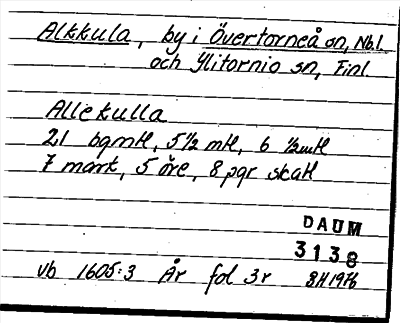 Alkkula, by i Övertorneå sn, Nbl.
och Ylitornio sn, Finl.
Allekulla
21 bgmtl, 5 1/2 mtl, 6 1/2 mtl
7 mark, 5 öre, 8 pgr skatt
DAUM
3138
vb 1605:3 År fol 3r BH 1976